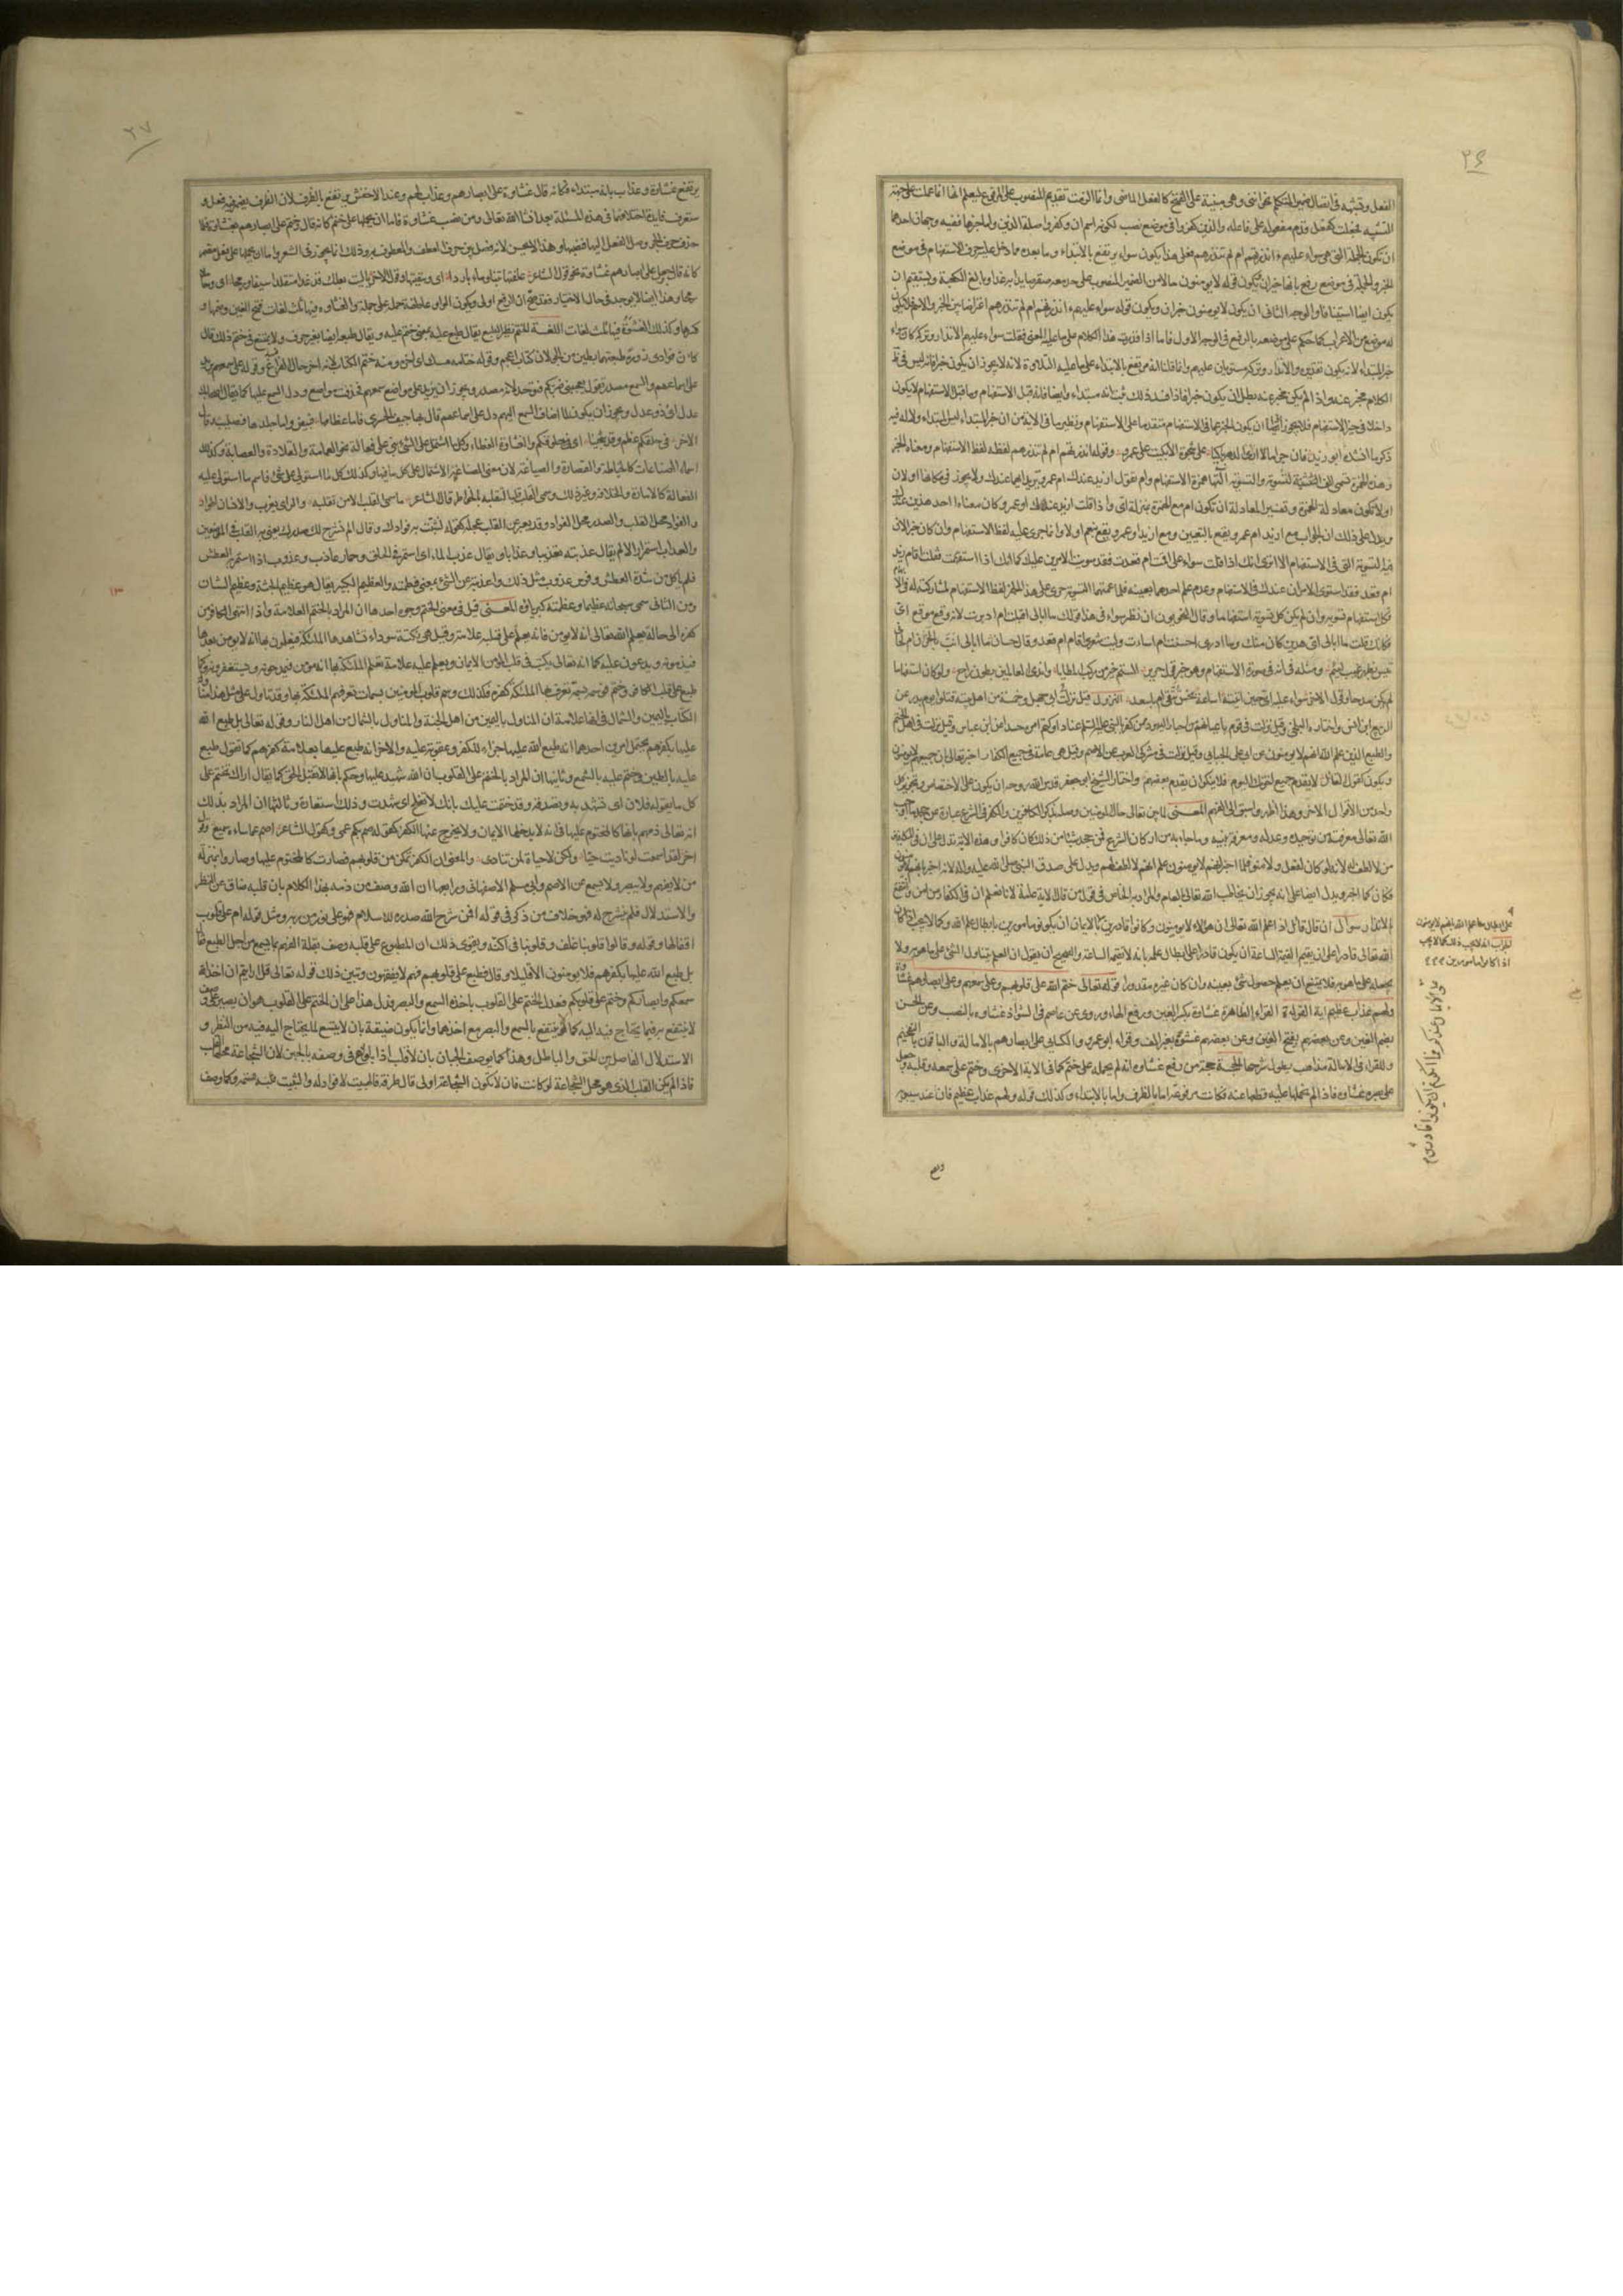 ٢٦
الفعل وتشبهه في اتصال ضمير المتكلم نحو انني وهي مبنية على الفتح كالفعل الماضي وانما الزمت تقديم المنصوب على المرفوع ليعلم انها انما عملت على جهة
ان تكون الجملة التي هي سواء عليهم ءانذرتهم ام لم تنذرهم فعلى هذا يكون سواء يرتفع بالابتداء وما بعده مما دخل عليه حرف الاستفهام في موضع
الخبر والجملة في موضع رفع بانها خبر ان ويكون قوله لا يؤمنون حالا من الضمير المنصوب على حد معه صقر صايدا به غدا وبالغ الكعبة ويستقيم ان
يكون ايضا استينافا والوجه الثاني ان يكون لا يؤمنون خبر ان ويكون قوله سواء عليهم ءانذرتهم ام لم تنذرهم اعتراضا بين الخبر والاسم فلا يكون
له موضع من الاعراب كما حكم على موضعه بالرفع في الوجه الاول فاما اذا قدرت هذا الكلام على ما عليه المعنى فقلت سواء عليهم الانذار وتركه كان سواء
خبر المبتداء لانه يكون تقديره الانذار وتركه مستويان عليهم وانما قلنا انه مرتفع بالابتداء على ما عليه التلاوة لانه لا يجوز ان يكون خبرا فانه ليس في ظاهر
الكلام مخبر عنه واذا لم يكن مخبر عنه بطل ان يكون خبرا فاذا فسد ذلك ثبت انه مبتداء وايضا فانه قبل الاستفهام وما قبل الاستفهام لا يكون
داخلا في حيز الاستفهام فلا يجوز ايضا ان يكون الخبر عما في الاستفهام متقدما على الاستفهام ونظير ما في الاية من ان خبر المبتداء ليس المبتداء ولا له فيه
ذكر ما انشده ابو زيد فان حراما لا ارى الدهر باكيا على شجوه الا بكيت على عمرو وقوله ءانذرتهم ام لم تنذرهم لفظه لفظ الاستفهام ومعناه الخبر
وهذه الهمزة تسمى الف التسوية والتسوية آلتها همزة الاستفهام وام تقول ازيد عندك ام عمرو تريد ايهما عندك ولا يجوز في مكانها او لان
او لا تكون معادلة الهمزة وتفسير المعادلة ان تكون ام مع الهمزة بمنزلة اي واذا قلت ازيد عندك او عمرو كان معناه احد هذين عندك
ويدل على ذلك ان الجواب مع ازيد ام عمرو يقع بالتعيين ومع ازيد او عمرو يقع بنعم او لا وانما جرى عليه لفظ الاستفهام وان كان خبرا لان
فيه التسوية التي في الاستفهام الا ترى انك اذا قلت سواء على اقمت ام قعدت فقد سويت الامرين عليك كما انك اذا استفهمت فقلت اقام زيد
ام قعد فقد استوى الامران عندك في الاستفهام وعدم علم احدهما بعينه فلما عمتهما التسوية جرى على هذا الخبر لفظ الاستفهام لمشاركته له في الابهام
فكل استفهام تسوية وان لم يكن كل تسوية استفهاما وقال النحويون ان نظير سواء في هذا قولك ما ابالي اقبلت ام ادبرت لانه وقع موقع اي
فكانك قلت ما ابالي اي هذين كان منك وما ادري احسنت ام اسات وليت شعري اقام ام قعد وقال حسان ما ابالي انب بالحزن ام لحاني
بظهر غيب لئيم ومثله في انه في صورة الاستفهام وهو خبر قول جرير الستم خير من ركب المطايا واندى العالمين بطون راح ولو كان استفهاما
لم يكن مدحا وقول الاخر سواء عليه اي حين اتيته اساعة نحس تتقي ام باسعد النزول قيل نزلت في ابي جهل وخمسة من اهل بيته قتلوا يوم بدر عن
الربيع ابن انس واختاره البلخي وقيل نزلت في قوم باعيانهم من احبار اليهود ممن كفر بالنبي عليه السلم عنادا وكتم امره حسدا عن ابن عباس وقيل نزلت في اهل الختم
والطبع الذين علم الله انهم لا يؤمنون عن ابي علي الجبايي وقيل نزلت في مشركي العرب عن الاصم وقيل هي عامة في جميع الكفار اخبر تعالى ان جميعهم لا يؤمنون
ويكون كقول القائل لا يقدم جميع اخوتك اليوم فلا ينكر ان يقدم بعضهم واختار الشيخ ابو جعفر قدس الله روحه ان يكون على الاختصاص وتجويز كل
واحد من الاقوال الاخر وهذا اظهر واسبق الى الفهم المعنى لما بين تعالى حال المؤمنين وصله بذكر الكافرين والكفر في الشرع عبارة عن جحد ما اوجب
الله تعالى معرفته من توحيده وعدله ومعرفة نبيه وما جاء به من اركان الشرع فمن جحد شيئا من ذلك كان كافرا وهذه الاية تدل على ان في المكلفين
من لا لطف له لانه لو كان لفعل ولامنوا فلما اخبر انهم لا يؤمنون علم انهم لا لطف لهم ويدل على صدق النبي صلى الله عليه واله لانه اخبر بانهم لا يؤمنون
فكان كما اخبر ويدل ايضا على انه يجوز ان يخاطب الله تعالى العام والمراد به الخاص في قول من قال الاية عامة لانا نعلم ان في الكفار من امن وانتفع
بالانذار سؤال ان قال قائل اذا علم الله تعالى ان هؤلاء لا يؤمنون وكانوا قادرين على الايمان ان يكونوا مامورين بابطال علم الله وكما لا يجب اذا كان
الله تعالى قادرا على ان يقيم القيمة الساعة ان يكون قادرا على ابطال علمه بانه لا يقيمها الساعة والصحيح ان نقول ان العلم يتناول الشئ على ما هو به ولا
يجعله على ما هو به فلا يمتنع ان يعلم حصول شئ بعينه وان كان غيره مقدورا قوله تعالى ختم الله على قلوبهم وعلى سمعهم وعلى ابصارهم غشاوة
ولهم عذاب عظيم اية القراءة القراءة الظاهرة غشاوة بكسر الغين ورفع الهاء وروى عن عاصم في الشواذ غشاوة بالنصب وعن الحسن
بضم الغين وعن بعضهم بفتح الغين وعن بعضهم غشوة بغير الف وقراء ابو عمرو والكسائي على ابصارهم بالامالة والباقون بالتفخيم
وللقراء في الامالة مذاهب يطول شرحها الحجة حجة من رفع غشاوة انه لم يحمله على ختم كما في الاية الاخرى وختم على سمعه وقلبه وجعل
على بصره غشاوة فاذا لم يحملها عليه قطعها عنه فكانت مرفوعة اما بالظرف واما بالابتداء وكذلك قوله ولهم عذاب عظيم فان عند سيبويه
اذا كانوا مامورين
٢٧
يرتفع غشاوة وعذاب بانه مبتداء فكانه قال غشاوة على ابصارهم وعذاب لهم وعند الاخفش يرتفع بالظرف لان الظرف يضمر فيه فعل و
ستعرف فايدة اختلافهما في هذه المسئلة بعد ان شاء الله تعالى ومن نصب غشاوة فاما ان يحملها على ختم كانه قال وختم على ابصارهم بغشاوة فلما
حذف حرف الجر وصل الفعل اليها فنصبها وهذا لا يحسن لانه فصل بين حرف العطف والمعطوف به وذلك انما يجوز في الشعر واما ان يحملها على فعل مضمر
كانه قال وجعل على ابصارهم غشاوة نحو قول الشاعر علفتها تبنا وماء باردا اي وسقيتها وقول الاخر يا ليت بعلك قد غدا متقلدا سيفا ورمحا اي وحاملا
رمحا وهذا ايضا لا يوجد في حال الاختيار فقد صح ان الرفع اولى وتكون الواو عاطفة جملة على جملة والغشاوة فيها ثلث لغات فتح الغين وضمها و
كسرها وكذلك الغشوة فيها ثلث لغات اللغة الختم نظير الطبع يقال طبع عليه بمعنى ختم عليه ويقال طبعه ايضا بغير حرف ولا يمتنع في ختم ذلك قال
كان قرادي زوره طبعتهما بطين من الجولان كتاب اعجم وقوله ختامه مسك اي اخره ومنه ختم الكتاب لانه اخر حال الفراغ وقوله على سمعهم يريد
على اسماعهم والسمع مصدر تقول يعجبني ضربكم فتوحد لانه مصدر ويجوز ان يريد على مواضع سمعهم فحذفت مواضع ودل السمع عليها كما يقال اصحابك
عدل اي ذوو عدل ويجوز ان يكون لما اضاف السمع اليهم دل على اسماعهم قال بها جيف الحسرى فاما عظامها فبيض واما جلدها فصليب وقال
الاخر في حلقكم عظم وقد شجينا اي في حلوقكم والغشاوة الغطاء وكل ما اشتمل على الشئ بني على فعالة نحو العمامة والقلادة والعصابة وكذلك
اسماء الصناعات كالخياطة والقصارة والصياغة لان معنى الصناعة الاشتمال على كل ما فيها وكذلك كل ما استولى على شئ فاسم ما استولى عليه
الفعالة كالامارة والخلافة وغير ذلك وسمي القلب قلبا لتقلبه بالخواطر قال الشاعر ما سمي القلب الا من تقلبه والراي يعزب والانسان اطوار
والفؤاد محل القلب والصدر محل الفؤاد وقد يعبر عن القلب بمحله كقوله لنثبت به فؤادك وقال الم نشرح لك صدرك يعني به القلب في الموضعين
والعذاب استمرار الالم يقال عذبته تعذيبا وعذابا ويقال عذب الماء اي استمر في الحلق وحمار عاذب وعذوب اذا استمر به العطش
فلم ياكل من شدة العطش وفرس عذوب مثل ذلك واعذبته عن الشئ بمعنى فطمته والعظيم الكبير يقال هو عظيم الجثة وعظيم الشان
ومن الثاني سمي سبحانه عظيما وعظمته كبرياؤه المعنى قيل في معنى الختم وجوه احدها ان المراد بالختم العلامة واذا انتهى الكافر من
كفره الى حالة يعلم الله تعالى انه لا يؤمن فانه يعلم على قلبه علامة وقيل هي نكتة سوداء تشاهدها الملئكة فيعلمون بها انه لا يؤمن بعدها
فيذمونه ويدعون عليه كما انه تعالى يكتب في قلب المؤمن الايمان ويعلم عليه علامة تعلم الملئكة بها انه مؤمن فيمدحونه ويستغفرون له وكما
طبع على قلب الكافر وختم فوسمه بسمة تعرف بها الملئكة كفره فكذلك وسم قلوب المؤمنين بسمات تعرفهم الملئكة بها وقد تاول على مثل هذا مناولة
الكتاب باليمين والشمال في انها علامة ان المناول باليمين من اهل الجنة والمناول بالشمال من اهل النار وقوله تعالى بل طبع الله
عليها بكفرهم يحتمل امرين احدهما انه طبع الله عليها جزاء للكفر وعقوبة عليه والاخر انه طبع عليها بعلامة كفرهم كما تقول طبع
عليه بالطين وختم عليه بالشمع وثانيها ان المراد بالختم على القلوب ان الله شهد عليها وحكم بانها لا تقبل الحق كما يقال اراك تختم على
كل ما يقوله فلان اي تشهد به وتصدقه وقد ختمت عليك بانك لا تفلح اي شهدت وذلك استعارة وثالثها ان المراد بذلك
انه تعالى ذمهم بانها كالمختوم عليها في انه لا يدخلها الايمان ولا يخرج عنها الكفر كقوله صم بكم عمي وكقول الشاعر اصم عما ساءه سميع وقول
اخر لقد اسمعت لو ناديت حيا ولكن لا حياة لمن تنادي والمعنى ان الكفر تمكن من قلوبهم فصارت كالمختوم عليها وصاروا بمنزلة
من لا يفهم ولا يبصر ولا يسمع عن الاصم وابي مسلم الاصفهاني ورابعها ان الله وصف من ذمه بهذا الكلام بان قلبه ضاق عن النظر
والاستدلال فلم ينشرح له فهو خلاف من ذكر في قوله افمن شرح الله صدره للاسلام فهو على نور من ربه ومثل قوله ام على قلوب
اقفالها وقوله وقالوا قلوبنا غلف وقلوبنا في اكنة ويقوي ذلك ان المطبوع على قلبه وصف بقلة الفهم بما يسمع من اجل الطبع فقال
بل طبع الله عليها بكفرهم فلا يؤمنون الا قليلا وقال فطبع على قلوبهم فهم لا يفقهون ويبين ذلك قوله تعالى قل ارايتم ان اخذ الله
سمعكم وابصاركم وختم على قلوبكم فعدل الختم على القلوب باخذه السمع والبصر فدل هذا على ان الختم على القلوب هو ان يصير على وصف
لا ينتفع به فيما يحتاج فيه اليه كما لا ينتفع بالسمع والبصر مع اخذهما وانما يكون ضيقه بان لا يتسع لما يحتاج اليه فيه من النظر و
الاستدلال الفاصل بين الحق والباطل وهذا كما يوصف الجبان بان لا قلب له اذا بولغ في وصفه بالجبن لان الشجاعة محلها القلب
فاذا لم يكن القلب الذي هو محل الشجاعة لو كانت فان لا تكون الشجاعة اولى قال طرفة فالهبيت لا فؤاد له والثبيت ثبته فهمه وكما وصف